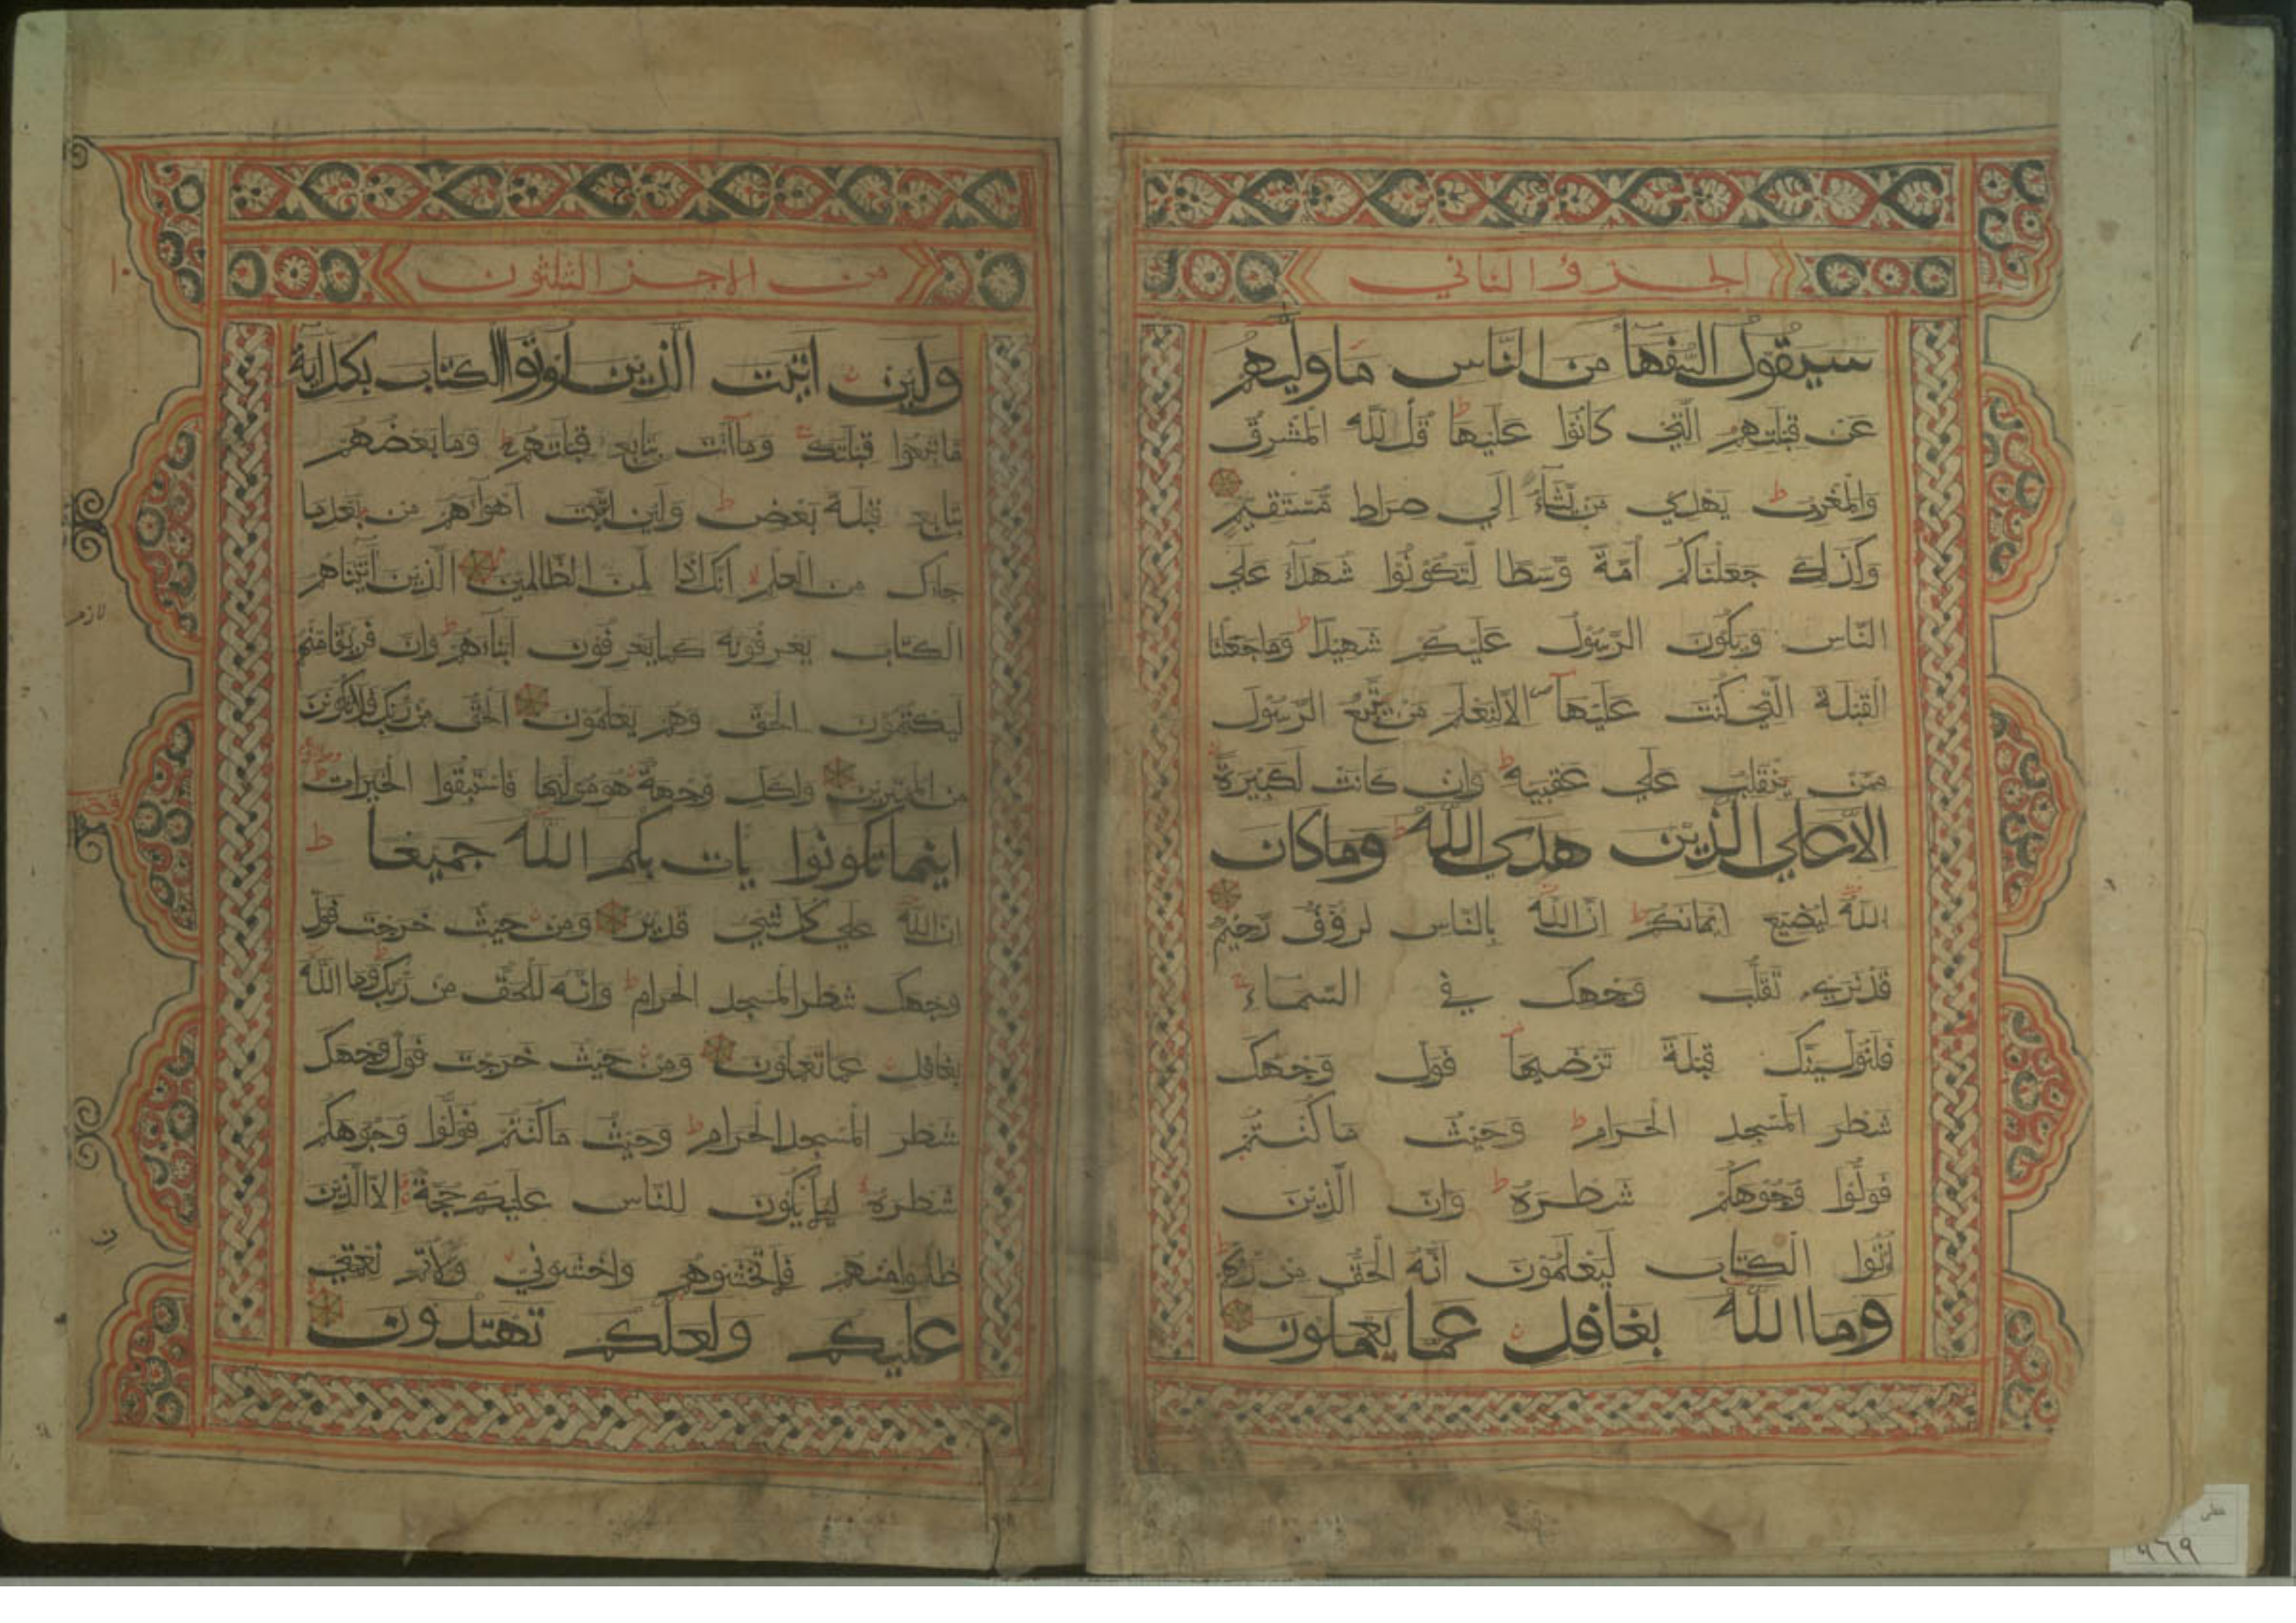 الجزؤ الثاني
سيقول السفهآ من الناس ماوليهم
عن قبلتهم التي كانوا عليها ط قل لله المشرق
والمغرب ط يهدي من يشآء إلي صراط مستقيم
وكذلك جعلناكم أمة وسطا لتكونوا شهدآء علي
الناس ويكون الرسول عليكم شهيدا ط وماجعلنا
القبلة التي كنت عليهآ الا لنعلم من يتبع الرسول
ممن ينقلب علي عقبيه ط وان كانت لكبيرة
الا علي الذين هدي الله ط وماكان
الله ليضيع ايمانكم ط ان الله بالناس لرؤف رحيم
قد نري تقلب وجهك في السمآء
فلنولينك قبلة ترضيها فول وجهك
شطر المسجد الحرام ط وحيث ماكنتم
فولوا وجوهكم شطره ط وان الذين
أتوا الكتاب ليعلمون انه الحق من ربهم ط
وما الله بغافل عما يعملون
من الاجز الثلثون
ولين اتيت الذين اوتوا الكتاب بكل اية
ماتبعوا قبلتك وماأنت بتابع قبلتهم وما بعضهم
بتابع قبلة بعض ط ولين اتبعت أهوآهم من بعد ما
جاك من العلم انك اذا لمن الظالمين الذين اتيناهم
الكتاب يعرفونه كما يعرفون ابنآءهم ط وان فريقا منهم
ليكتمون الحق وهم يعلمون الحق من ربك فلا تكونن
من الممترين ولكل وجهة هو موليها فاستبقوا الخيرات ط
اينما تكونوا يأت بكم الله جميعا ط
ان الله علي كل شيء قدير ومن حيث خرجت فول
وجهك شطر المسجد الحرام ط وانه للحق من ربك ط وما الله
بغافل عما تعملون ومن حيث خرجت فول وجهك
شطر المسجد الحرام ط وحيث ماكنتم فولوا وجوهكم
شطره ليلا يكون للناس عليكم حجة الا الذين
ظلموا منهم فلا تخشوهم واخشوني ولأتم نعمتي
عليكم ولعلكم تهتدون
لازم
خطی
۹٦۹